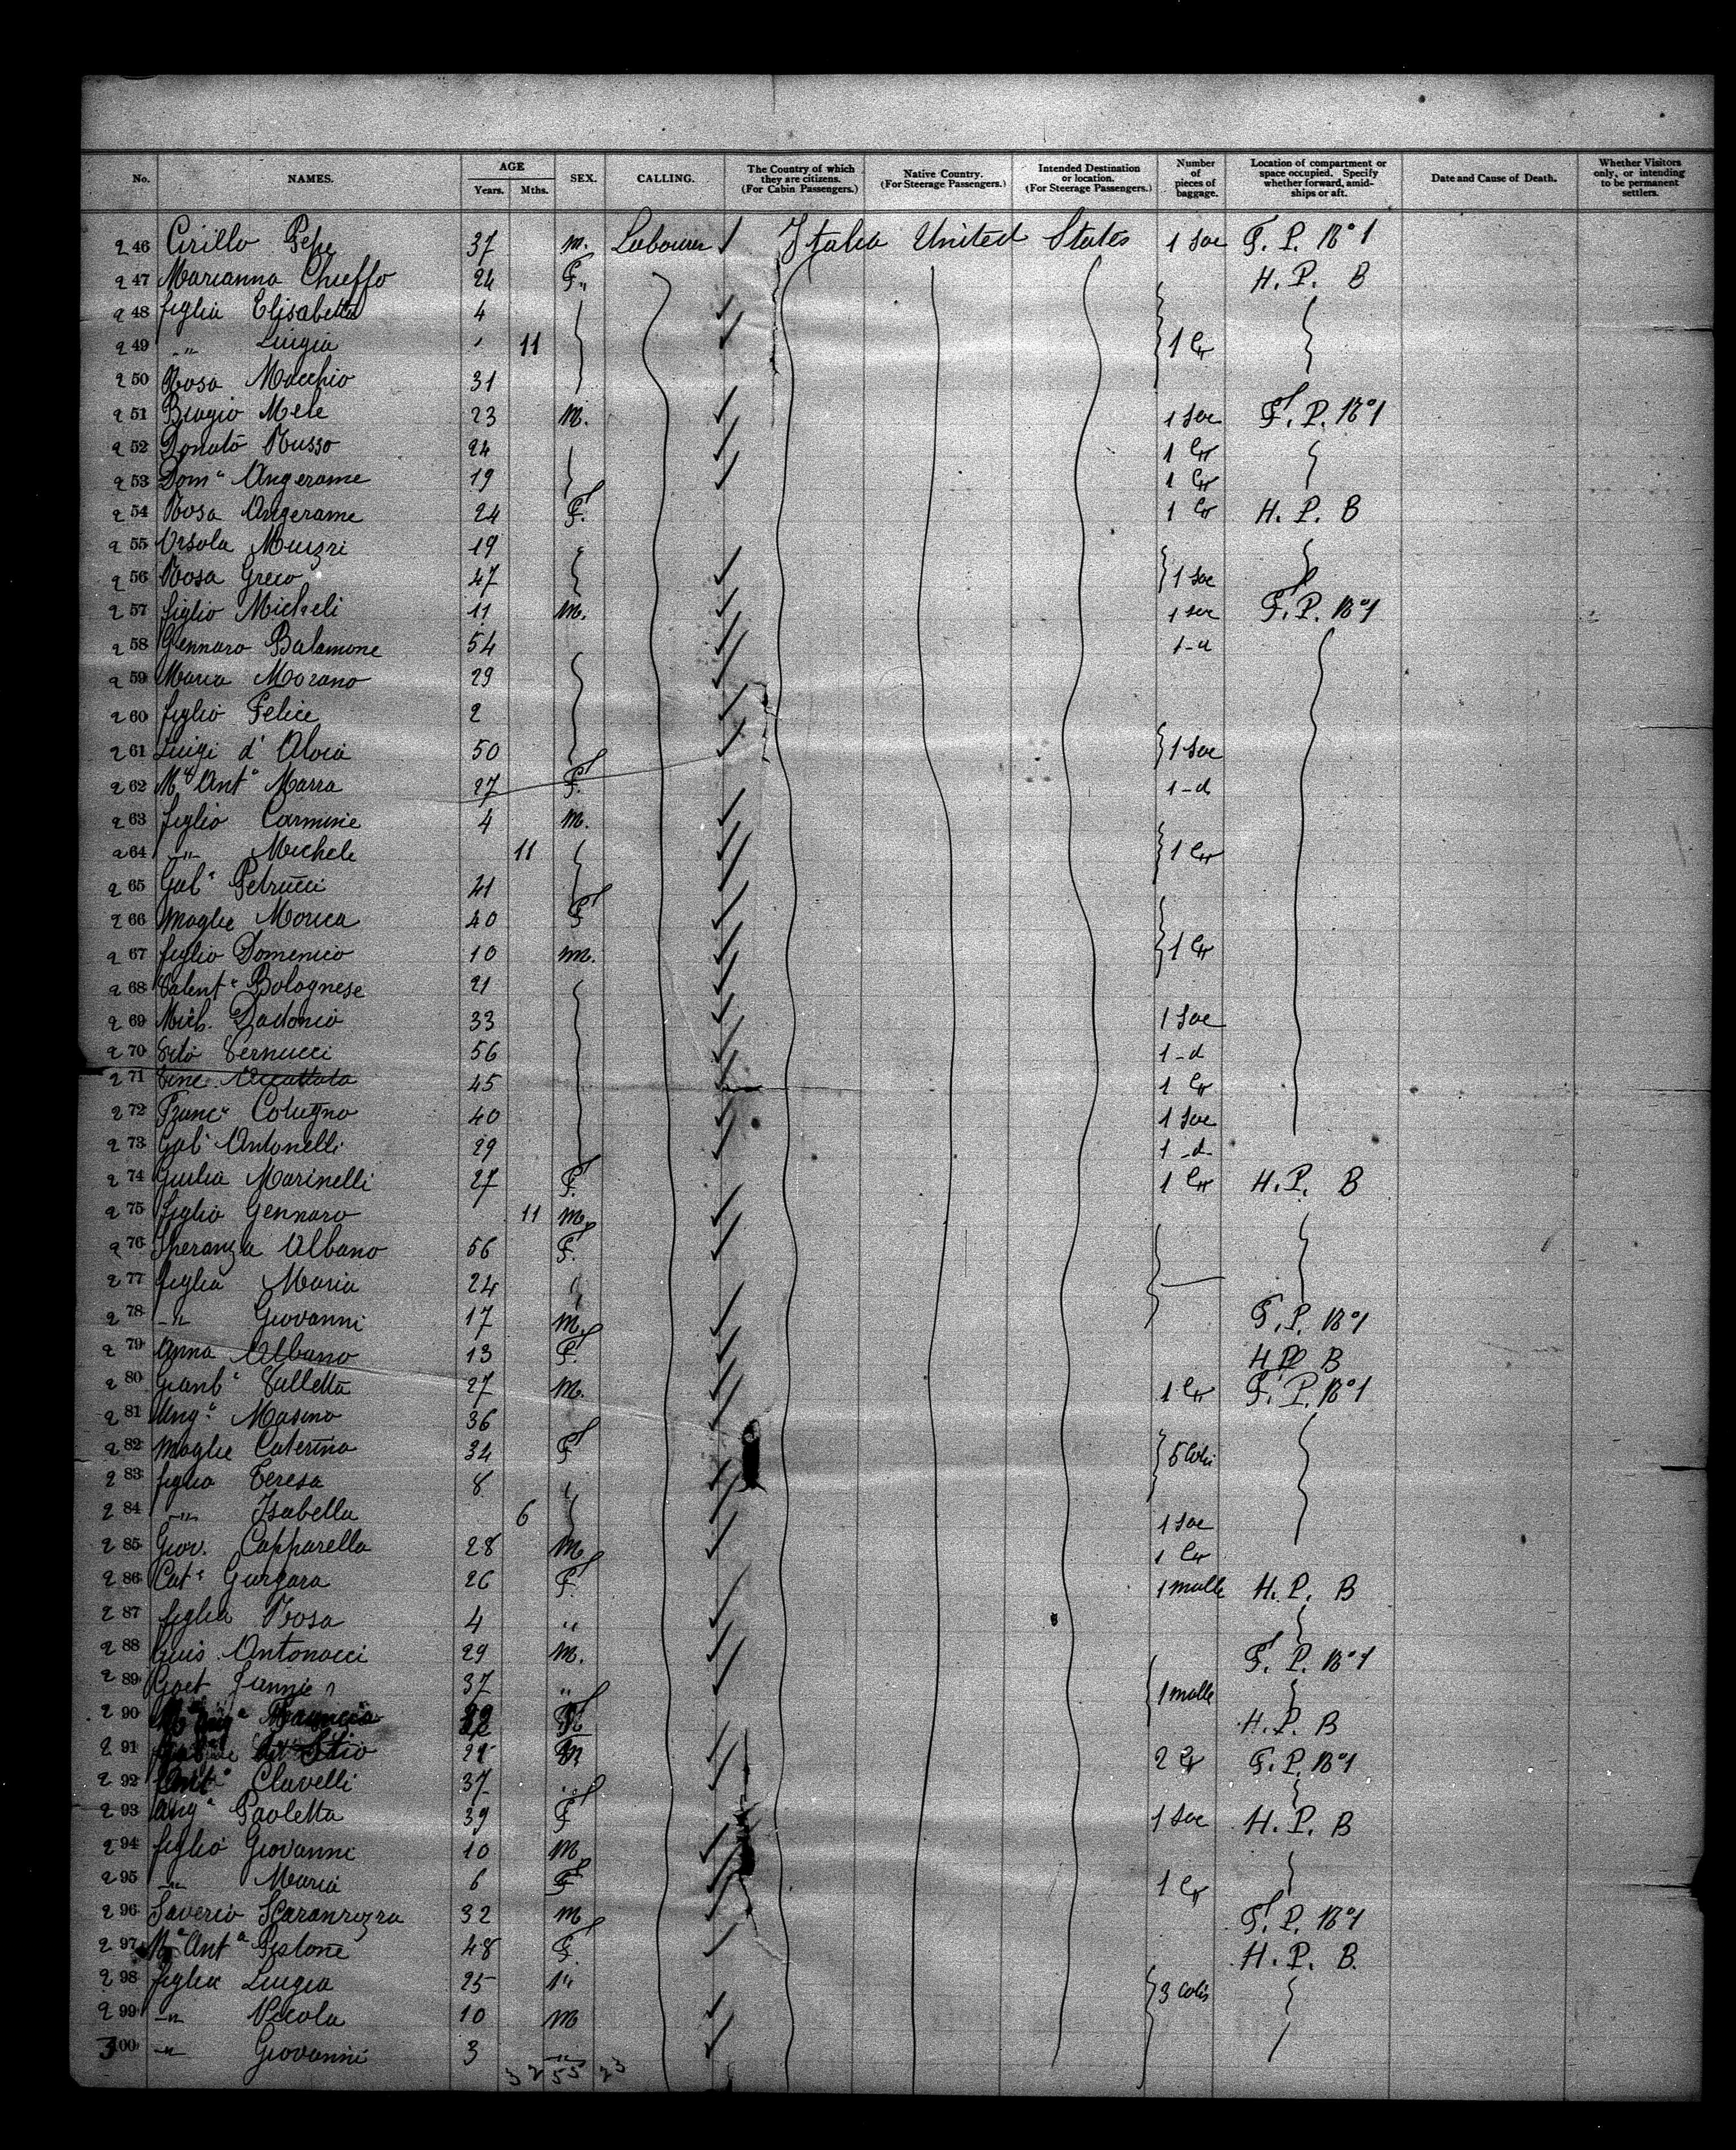 No. NAMES. AGE Years. Mths. SEX. CALLING. The Country of which they are citizens. (For Cabin Passengers.) Native Country. (For Steerage Passengers.) Intended Destination or location. (For Steerage Passengers.) Number of pieces of baggage. Location of compartment or space occupied. Specify whether forward, amidships or aft. Date and Cause of Death. Whether Visitors only, or intending to be permanent settlers.
246 Cirillo Pepe 37 m. Labourer Italia United States 1 Sac F. P. No 1
247 Marianna Chieffo 24 F. H. P. B
248 figlia Elisabetta 4
249 " Luigia 11 1 Cr
250 Rosa Macchio 31
251 Biagio Mele 23 M. 1 Sac F. P. No 1
252 Donato Russo 24 1 Cr
253 Doma Angerame 19 1 Cr
254 Rosa Angerame 24 F. 1 Cr H. P. B
255 Ursola 19
256 Rosa Greco 47 1 Sac
257 figlio Micheli 11 M. 1 sac F. P. No 1
258 Gennaro Balamone 54 1 - d
259 Maria Morano 29
260 figlio Felice 2
261 Luigi d' Aloia 50 1 Sac
262 Ma Anta Marra 27 F. 1 - d
263 figlio Carmine 4 M.
264 " Michele 11 1 Cr
265 Gabe Petrucci 41
266 moglie Morica 40 F
267 figlio Domenico 10 m. 1 Cr
268 Valente Bolognese 21
269 Mich. Dadonio 33 1 Sac
270 Vito Vernucci 56 1 - d
271 45 1 Cr
272 Franco Cotugno 40 1 Sac
273 Gabe Antonelli 29 1 - d
274 Giulia Marinelli 27 F. 1 Cr H. P. B
275 figlio Gennaro 11 M.
276 Speranza Albano 56 F.
277 figlia Maria 24
278 " Giovanni 17 M. F. P. No 1
279 Anna Albano 13 F. H. P. B
280 Gianba Valletta 27 M. 1 Cr F. P. No 1
281 Anga Masino 36
282 moglie Caterina 34 F 5 Colli
283 figlia Teresa 8
284 " Isabella 6 1 Sac
285 Giov. Capparella 28 M. 1 Cr
286 Cate Gargara 26 F. 1 malle H. P. B
287 figlia Rosa 4 "
288 Guis Antonacci 29 M. F. P. No 1
289 Gaet 37 " 1 malle
290 H. P. B
291 M 2 Cr F. P. No 1
292 Anto Clavelli 37
293 Anga Paoletta 39 F 1 Sac H. P. B
294 figlio Giovanni 10 M
295 " Maria 6 F 1 Cr
296 Saverio 32 m F. P. No 1
297 Ma Anta Pistone 48 F. H. P. B.
298 figlia Luigia 25 " 3 colis
299 " Nicola 10 M
300 " Giovanni 3 "
32 55 23